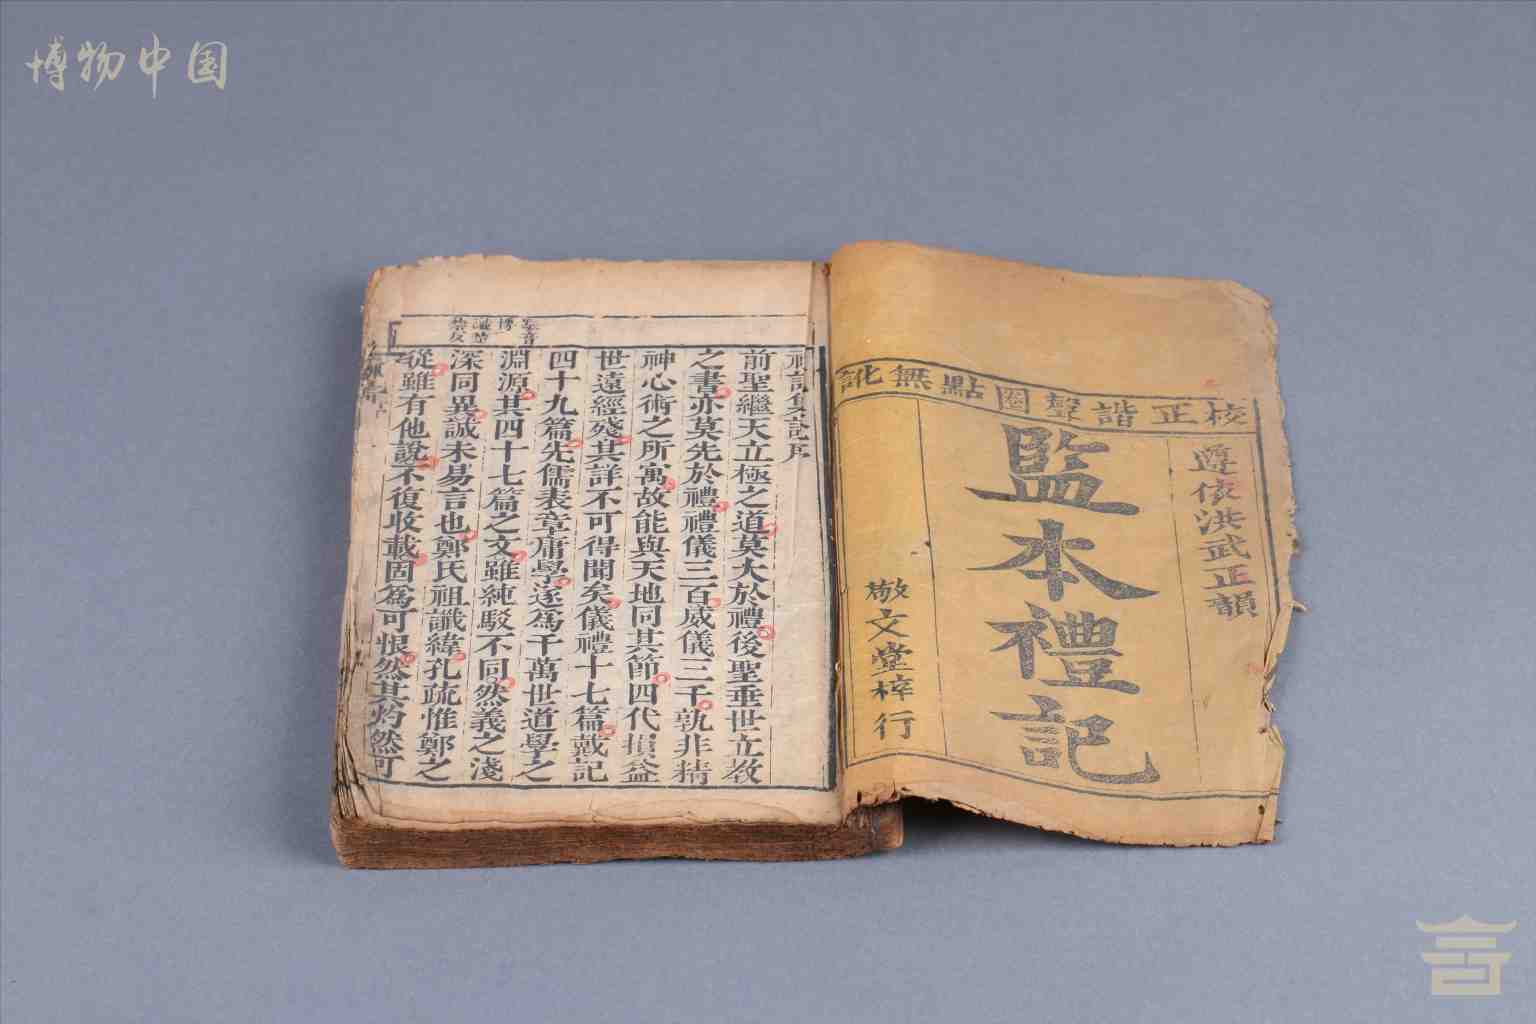 博物中国
校正諧聲圈點無訛
遵依洪武正韻
監本禮記
敬文堂梓行
禮記集說序
前聖繼天立極之道莫大於禮後聖垂世立教
之書亦莫先於禮禮儀三百威儀三千孰非精
神心術之所寓故能與天地同其節四代損益
世遠經殘其詳不可得聞矣儀禮十七篇戴記
四十九篇先儒表章庸學遂爲千萬世道學之
淵源其四十七篇之文雖純駁不同然義之淺
深同異誠未易言也鄭氏祖讖緯孔疏惟鄭之
從雖有他說不復收載固爲可恨然其灼然可